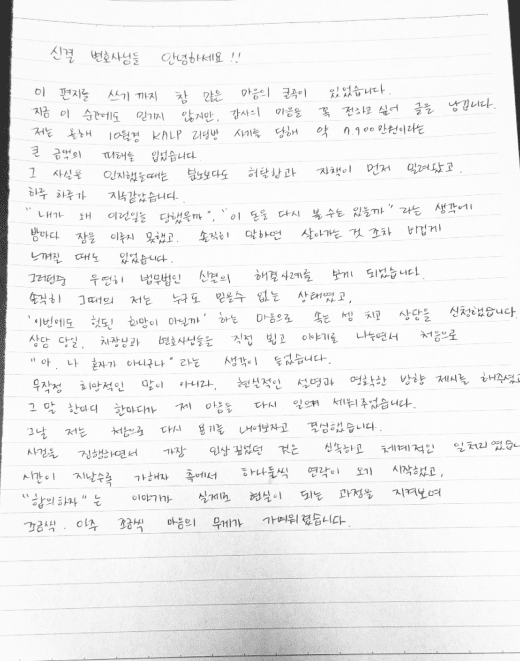 신결 변호사님들 안녕하세요!!
이 편지를 쓰기까지 참 많은 마음의 굴곡이 있었습니다.
지금 이 순간에도 믿기지 않지만, 감사의 마음을 꼭 전하고 싶어 글을 남깁니다.
저는 올해 10월경 KALP 리딩방 사기를 당해 약 7,900만원이라는
큰 금액의 피해를 입었습니다
그 사실을 인지했을때는 분노보다도 허탈함과 자책이 먼저 밀려왔고.
하루 하루가 지옥같았습니다.
"내가 왜 이런일을 당했을까", "이 돈을 다시 볼 수는 있을까" 라는 생각에
밤마다 잠을 이루지 못했고. 솔직히 말하면 살아가는 것 조차 버겁게
느껴질 때도 있었습니다.
그러던중 우연히 법무법인 신결의 해결사례를 보게 되었습니다.
솔직히 그때의 저는 누구도 믿을수 없는 상태였고,
'이번에도 헛된 희망이 아닐까' 하는 마음으로 속는 셈 치고 상담을 신청했습니다
상담 당일, 차장님과 변호사님들을 직접 뵙고 이야기를 나누면서 처음으로
"아, 나 혼자가 아니구나" 라는 생각이 들었습니다.
무작정 희망적인 말이 아니라, 현실적인 설명과 명확한 방향 제시를 해주셨고
그 말 한마디 한마디가 제 마음을 다시 일으켜 세워주었습니다.
그날 저는 처음으로 다시 용기를 내어보자고 결심했습니다.
사건을 진행하면서 가장 인상깊었던 것은 신속하고 체계적인 일처리였습니
시간이 지날수록 가해자 측에서 하나둘씩 연락이 오기 시작했고,
"합의하자"는 이야기가 실제로 현실이 되는 과정을 지켜보며
조금씩. 아주 조금씩 마음의 무게가 가벼워졌습니다.